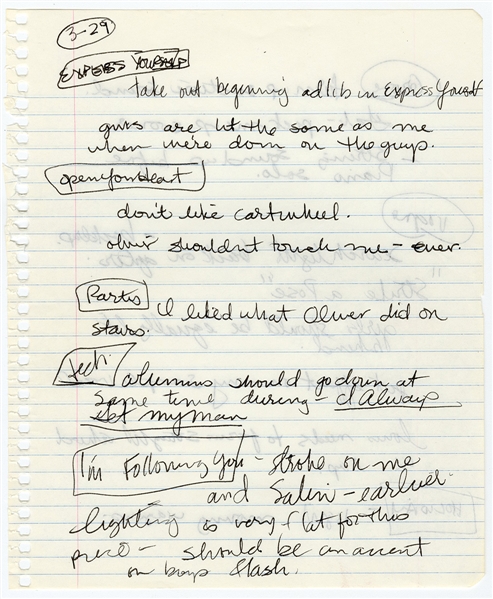 3-29
EXPRESS YOURSELF
take out beginning adlib in Express Yourself
guns are lit the same as me
when we're down on the guys.
Open Your Heart
don't like cartwheel.
oliver shouldn't touch me - ever.
Partis I liked what Oliver did on
stairs.
tech. columns should go down at
same time during - I Always
get my man
I'm Following You - strobe on me
and Salim - earlier.
lighting is very flat for this
piece - should be an accent
on boys flash.